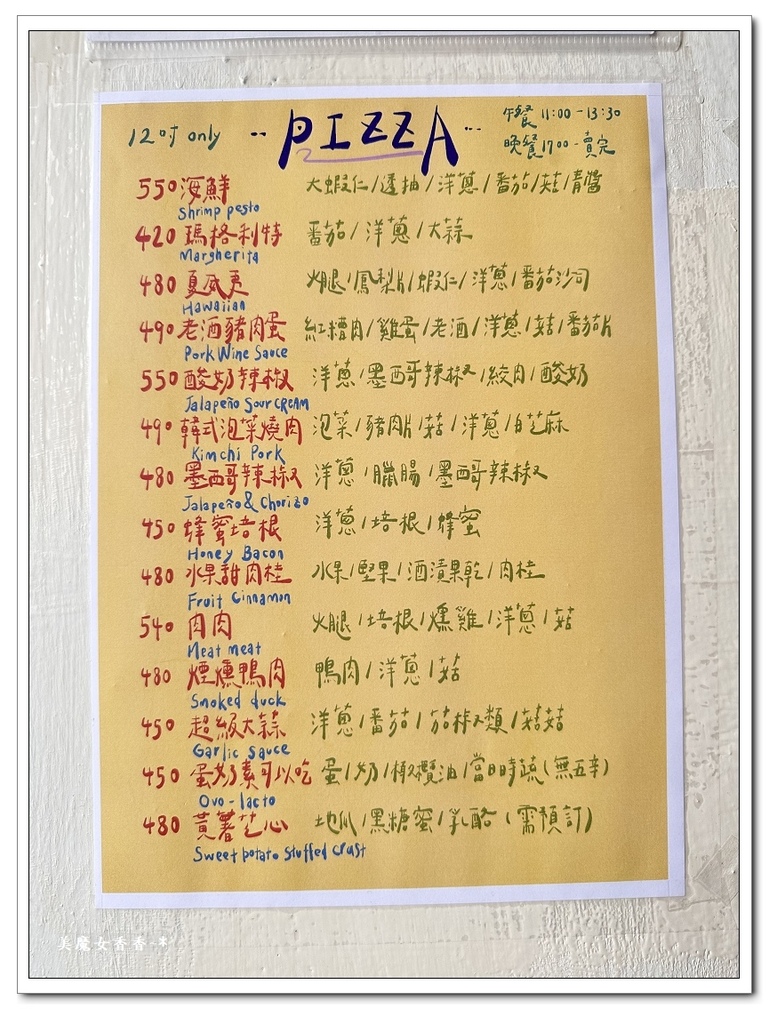 12吋 only
‥PIZZA‥
午餐 11:00 - 13:30
晚餐 17:00 - 賣完
550 海鮮 大蝦仁/透抽/洋蔥/番茄/菇/青醬
Shrimp pesto
420 瑪格利特 番茄/洋蔥/大蒜
Margherita
480 夏威夷 火腿/鳳梨片/蝦仁/洋蔥/番茄沙司
Hawaiian
490 老酒豬肉蛋 紅糟肉/雞蛋/老酒/洋蔥/菇/番茄片
Pork Wine Sauce
550 酸奶辣椒 洋蔥/墨西哥辣椒/絞肉/酸奶
Jalapeño Sour CREAM
490 韓式泡菜燒肉 泡菜/豬肉片/菇/洋蔥/白芝麻
Kimchi Pork
480 墨西哥辣椒 洋蔥/臘腸/墨西哥辣椒
Jalapeño & Chorizo
450 蜂蜜培根 洋蔥/培根/蜂蜜
Honey Bacon
480 水果甜肉桂 水果/堅果/酒漬果乾/肉桂
Fruit Cinnamon
540 肉肉 火腿/培根/燻雞/洋蔥/菇
Meat meat
480 煙燻鴨肉 鴨肉/洋蔥/菇
Smoked duck
450 超級大蒜 洋蔥/番茄/茄椒類/菇菇
Garlic sauce
450 蛋奶素可以吃 蛋/奶/橄欖油/當日時蔬(無五辛)
Ovo-lacto
480 黃薯芝心 地瓜/黑糖蜜/乳酪(需預訂)
Sweet potato Stuffed Crust
美魔女香香*